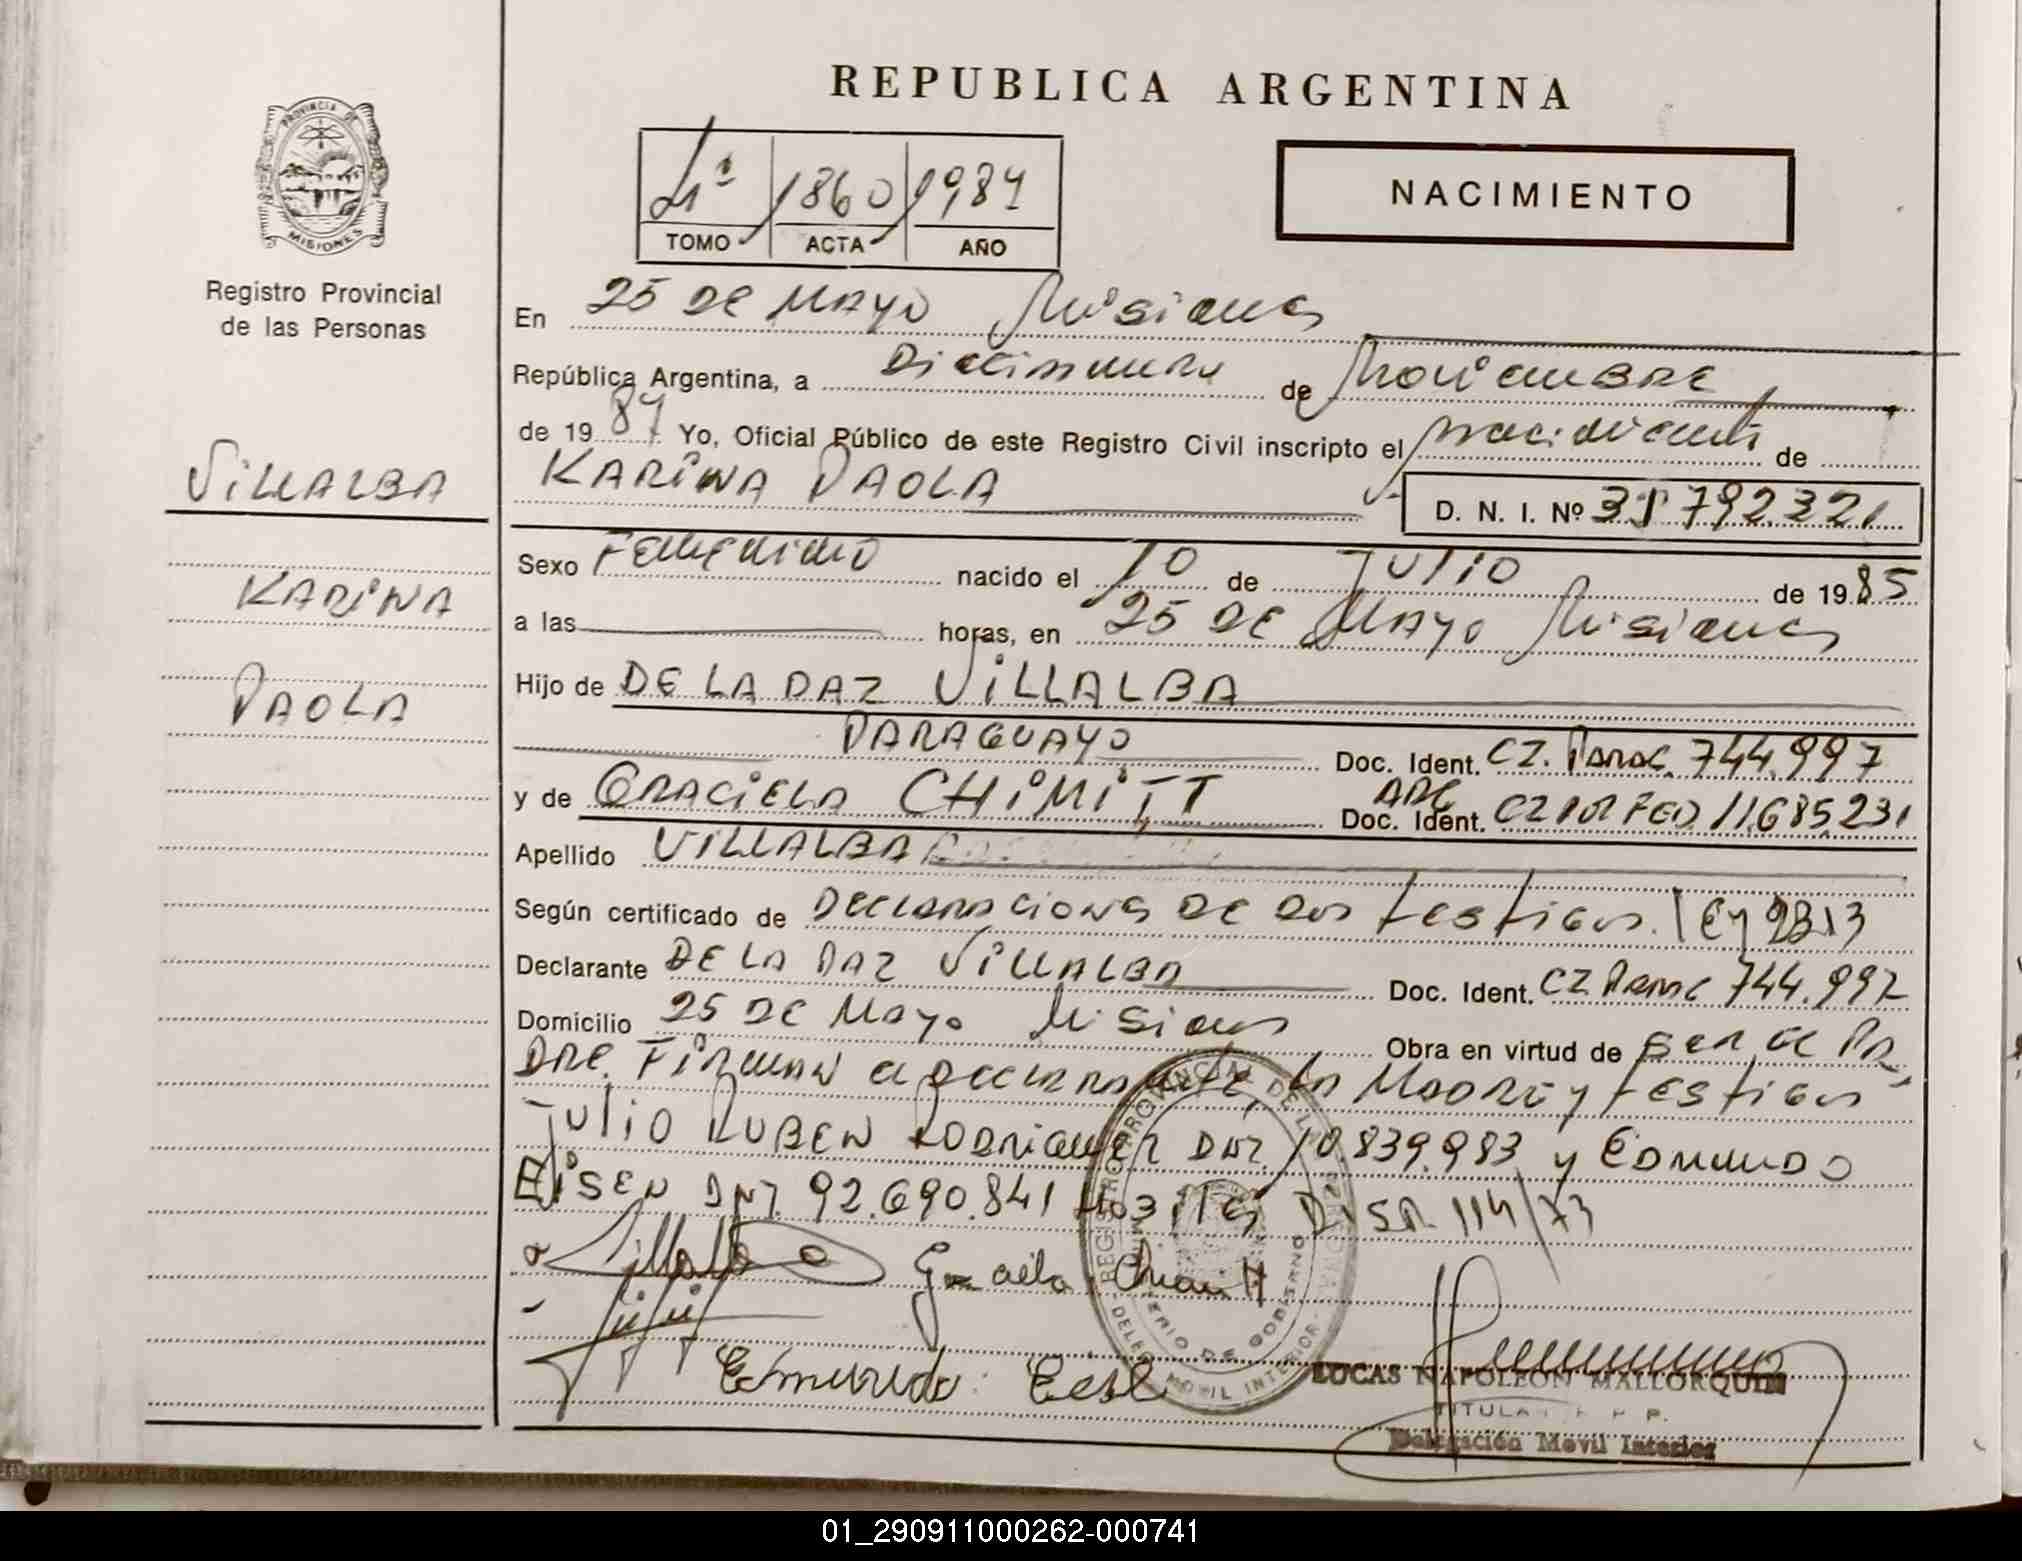 REPUBLICA ARGENTINA
PROVINCIA DE MISIONES
Registro Provincial
de las Personas
4ª 1860 1987
TOMO ACTA AÑO
NACIMIENTO
En 25 DE MAYO Misiones
República Argentina, a Diecinueve de Noviembre
de 1987 Yo, Oficial Público de este Registro Civil inscripto el nacimiento de
KARINA PAOLA D. N. I. Nº 31.792.321
VILLALBA
KARINA
PAOLA
Sexo Femenino nacido el 10 de Julio de 1985
a las horas, en 25 DE Mayo Misiones
Hijo de DE LA PAZ VILLALBA
PARAGUAYO Doc. Ident. CI. Parag. 744.997
y de GRACIELA CHIMITT Doc. Ident. ARG 11.685.231
Apellido VILLALBA
Según certificado de Declaraciones de dos testigos. Ley
Declarante DE LA PAZ VILLALBA Doc. Ident. CI Parag 744.997
Domicilio 25 DE Mayo Misiones Obra en virtud de ser el Pa
dre. Firman el declarante, la Madre y testigos
Julio RUBEN RODRIGUEZ DNI. 10.839.983 y EDMUNDO
EISEN DNI. 92.690.841 DISP. 114/73
Villalba Graciela Chimitt
Edmundo
REGISTRO PROVINCIAL DE LAS PERSONAS
MINISTERIO DE GOBIERNO
DELEG. MOVIL INTERIOR
LUCAS NAPOLEON MALLORQUIN
TITULAR R. P. P.
Delegación Movil Interior
01_290911000262-000741